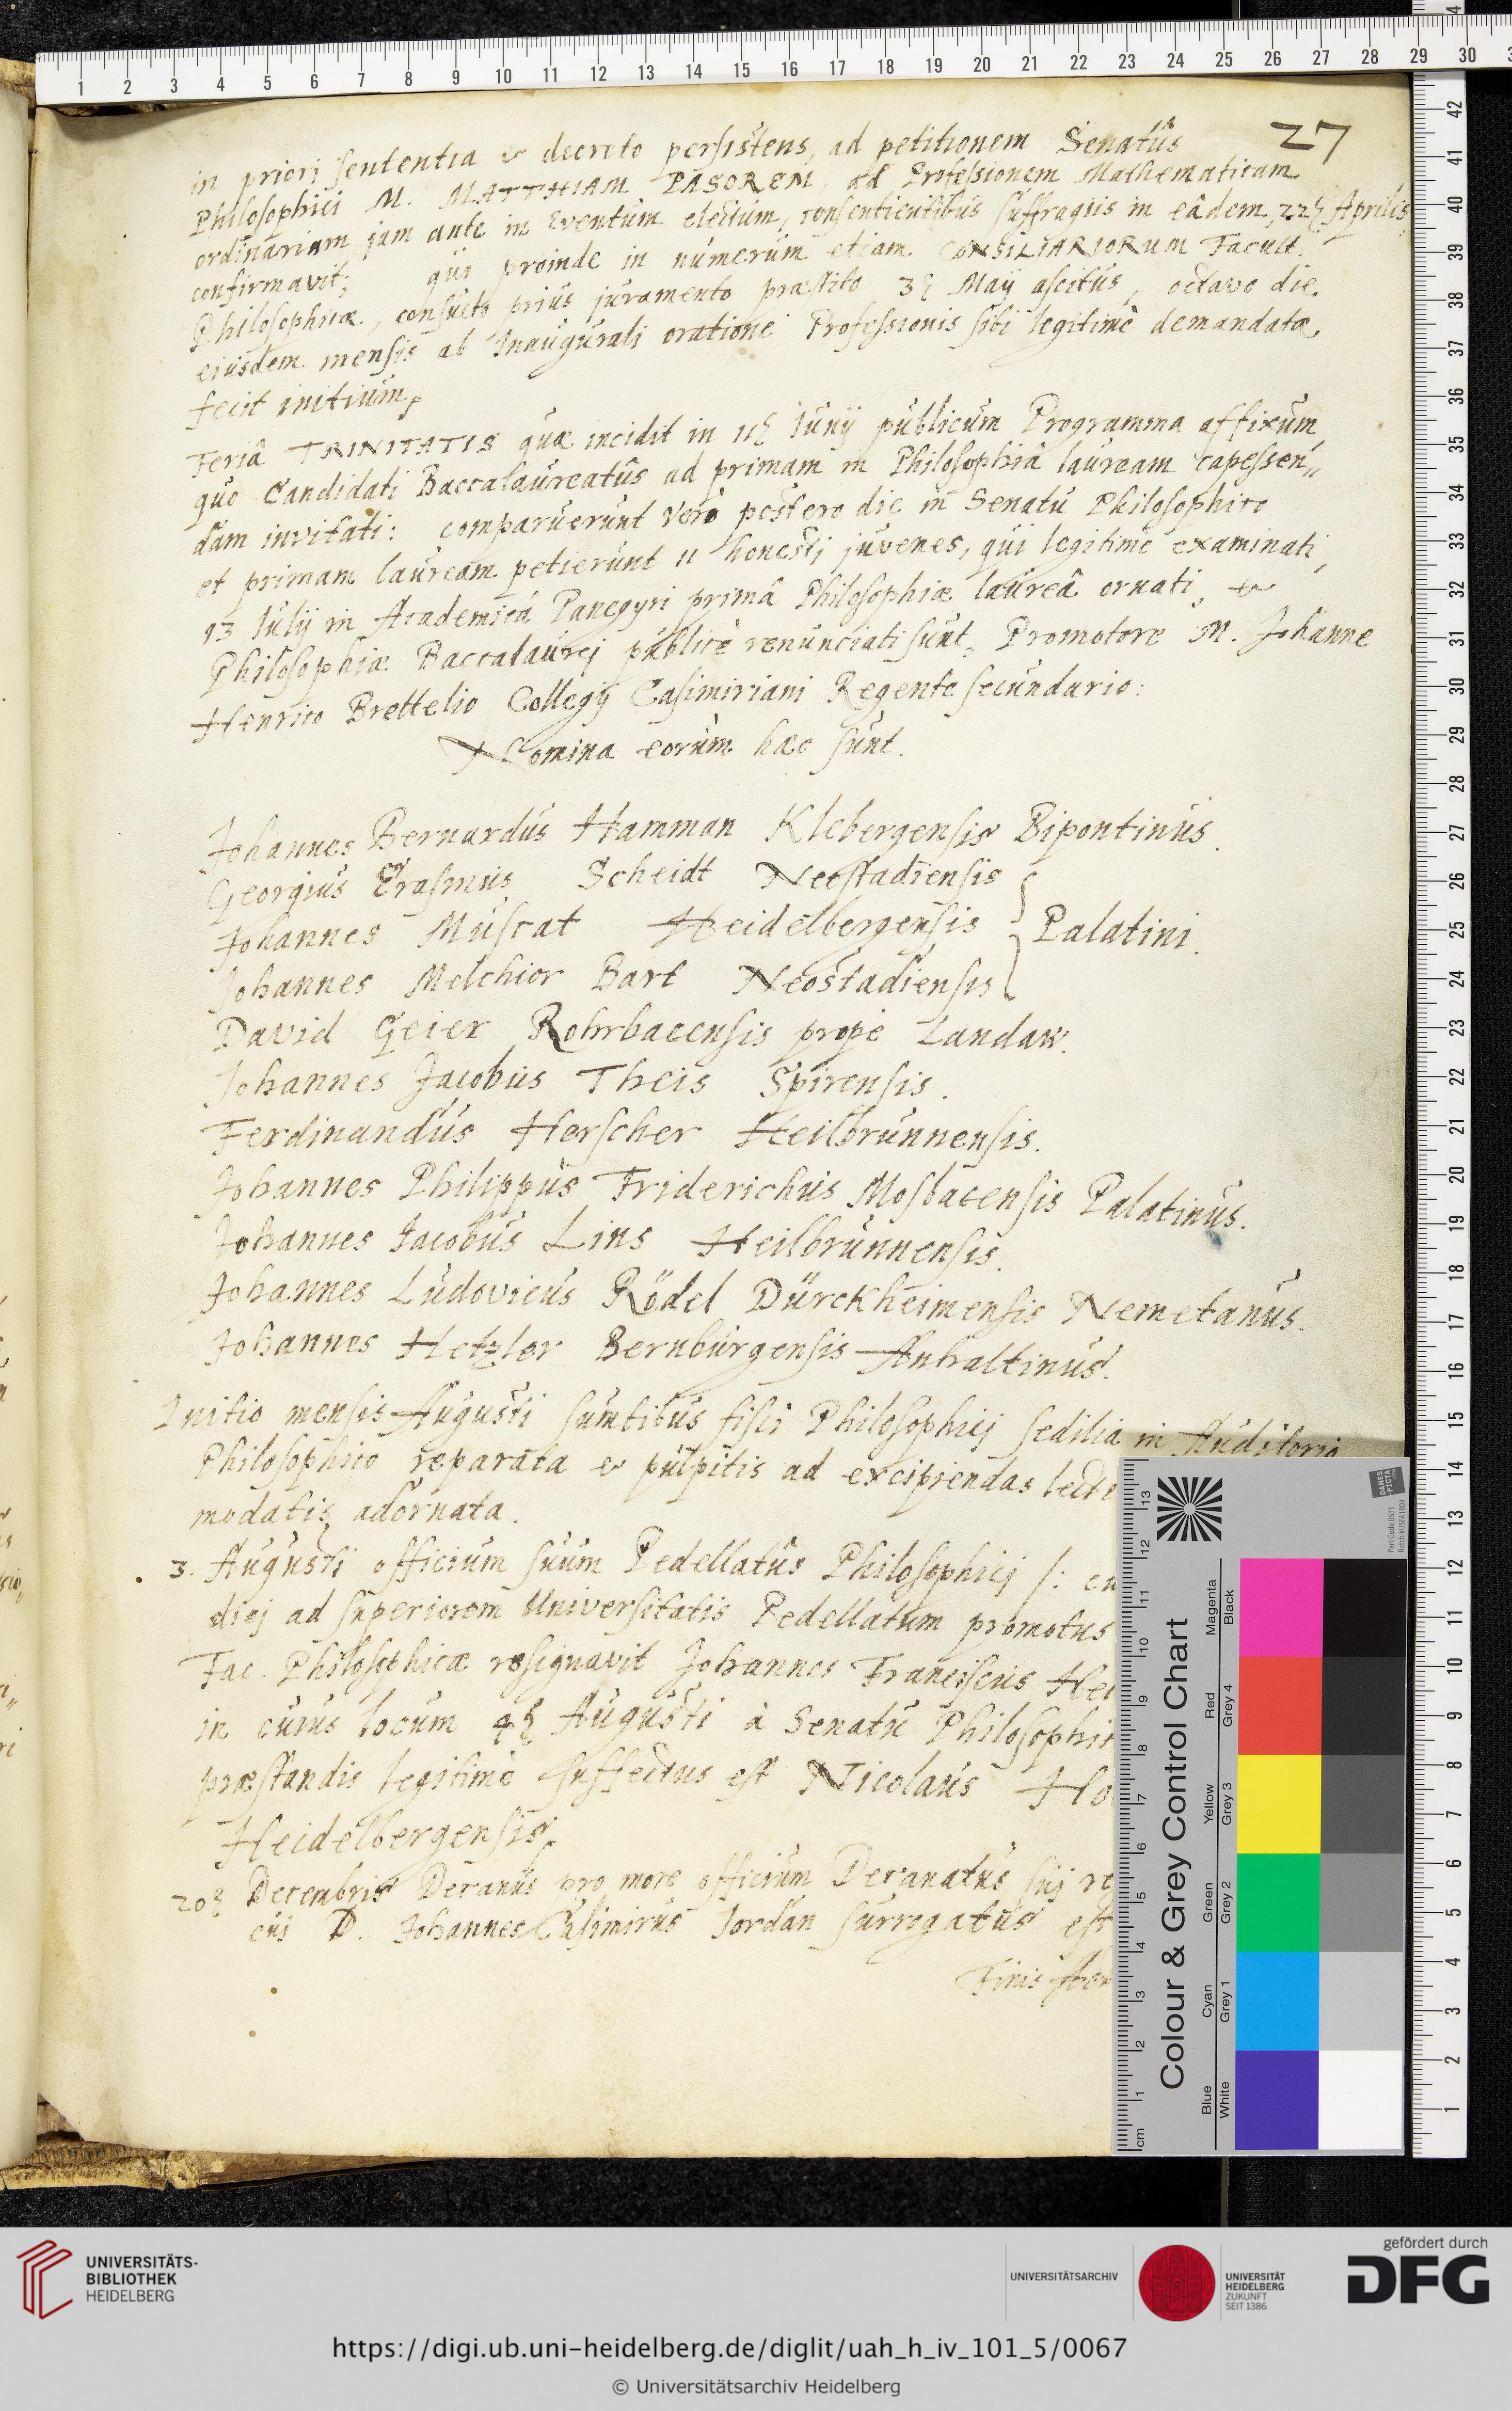 27
in priori sententia & decreto persistens, ad petitionem Senatûs
Philosophici M. MATTHIAM PASOREM, ad Professionem Mathematicam
ordinariam jam ante in Eventum electum, consentientibus suffragijs in eâdem, 22 Aprilis,
confirmavit; qui proinde in numerum etiam CONSILIARIORUM Facult.
Philosophicæ, consueto prius juramento præstito 3 Maÿ ascitus, octavo die
ejusdem mensis ab Inaugurali oratione Professionis sibi legitimè demandatæ
fecit initium.
Feriâ TRINITATIS quæ incidit in 11 Iunÿ publicum Programma affixum
quo Candidati Baccalaureatûs ad primam in Philosophiâ lauream capessen„
dam invitati: comparuerunt verò postero die in Senatu Philosophico
et primam lauream petierunt 11 honesti juvenes, qui legitimè examinati,
13 Iulÿ in Academicâ Panegyri primâ Philosophiæ laureâ ornati, &
Philosophiæ Baccalaurej publicè renunciati sunt, Promotore M. Johanne
Henrico Brettelio Collegÿ Casimiriani Regente secundario:
Nomina eorum hæc sunt.
Johannes Bernardus Hamman Klebergensis Bipontinus.
Georgius Erasmus Scheidt Neostadiensis
Johannes Muscat Heidelbergensis } Palatini.
Johannes Melchior Bart Neostadiensis
David Geier Rohrbacensis propè Landaw.
Johannes Jacobus Theis Spirensis.
Ferdinandus Herscher Heilbrunnensis.
Johannes Philippus Friderichus Mosbacensis Palatinus.
Johannes Jacobus Lins Heilbrunnensis.
Johannes Ludovicus Rödel Dürckheimensis Nemetanus.
Johannes Hetzler Bernburgensis Anhaltinus.
Initio mensis Augusti sumtibus fisci Philosophicj sedilia in Auditorio
Philosophico reparata & pulpitis ad excipiendas lecti
modatis adornata.
3. Augusti officium suum Pedellatus Philosophicj /: cu
diej ad superiorem Universitatis Pedellatum promotus
Fac. Philosophicæ resignavit Johannes Franciscus Hei
in cujus locum 4 Augusti à Senatu Philosophic
præstandis legitimè suffectus est Nicolaus Ho
Heidelbergensis.
20 Decembris Decanus pro more officium Decanatus sui re
cui D. Johannes Casimirus Jordan surrogatus est
Finis
Colour & Grey Control Chart
Blue Cyan Green Yellow Red Magenta
White Grey 1 Grey 2 Grey 3 Grey 4 Black
DANES
-PICTA
UNIVERSITÄTS-
BIBLIOTHEK
HEIDELBERG
UNIVERSITÄTSARCHIV
UNIVERSITÄT
HEIDELBERG
ZUKUNFT
SEIT 1386
gefördert durch
DFG
https://digi.ub.uni-heidelberg.de/diglit/uah_h_iv_101_5/0067
© Universitätsarchiv Heidelberg